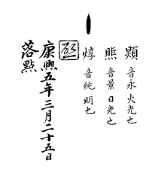 熲 音永 火光也
音景 日光也
焞 音純 明也
啟
康熙五年三月二十五日
落點